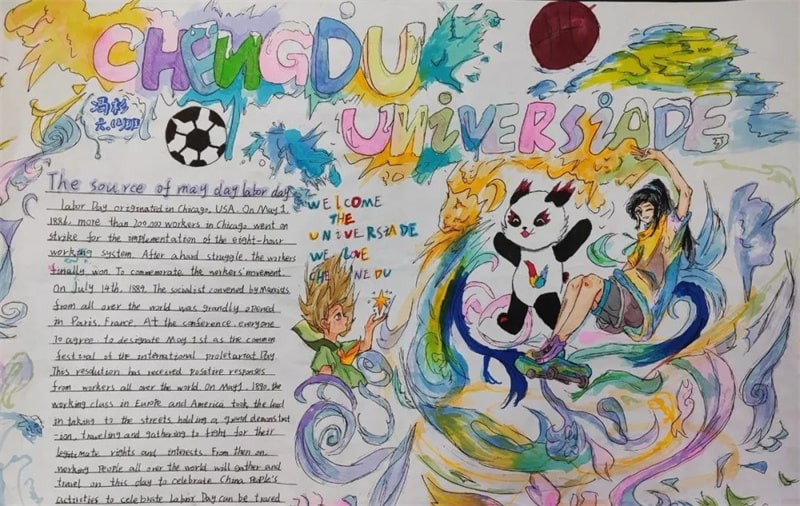 CHENGDU
UNIVERSIADE
冯彩
六.(1)班
The source of may day labor day
labor Day originated in Chicago, USA. On May 1.
1886, more than 200,000 workers in Chicago went on
strike for the implementation of the eight-hour
working system. After a hard struggle, the workers
finally won. To commemorate the workers' movement.
On July 14th. 1889. The socialist convened by Marxists
from all over the world was grandly opened
in Paris, France. At the conference, everyone
To agree to designate May 1st as the common
festival of the international proletariat. Day
This resolution has received positive responses
from workers all over the world. On May 1. 1890, the
working class in Europe and America took the lead
in taking to the streets holding a grand demonstrat
-ion, traveling and gathering to fight for their
legitimate rights and interests. From then on,
working people all over the world will gather and
travel on this day to celebrate China people's
activities to celebrate Labor Day can be traced
WELCOME
THE
UNIVERSIADE
WE LOVE